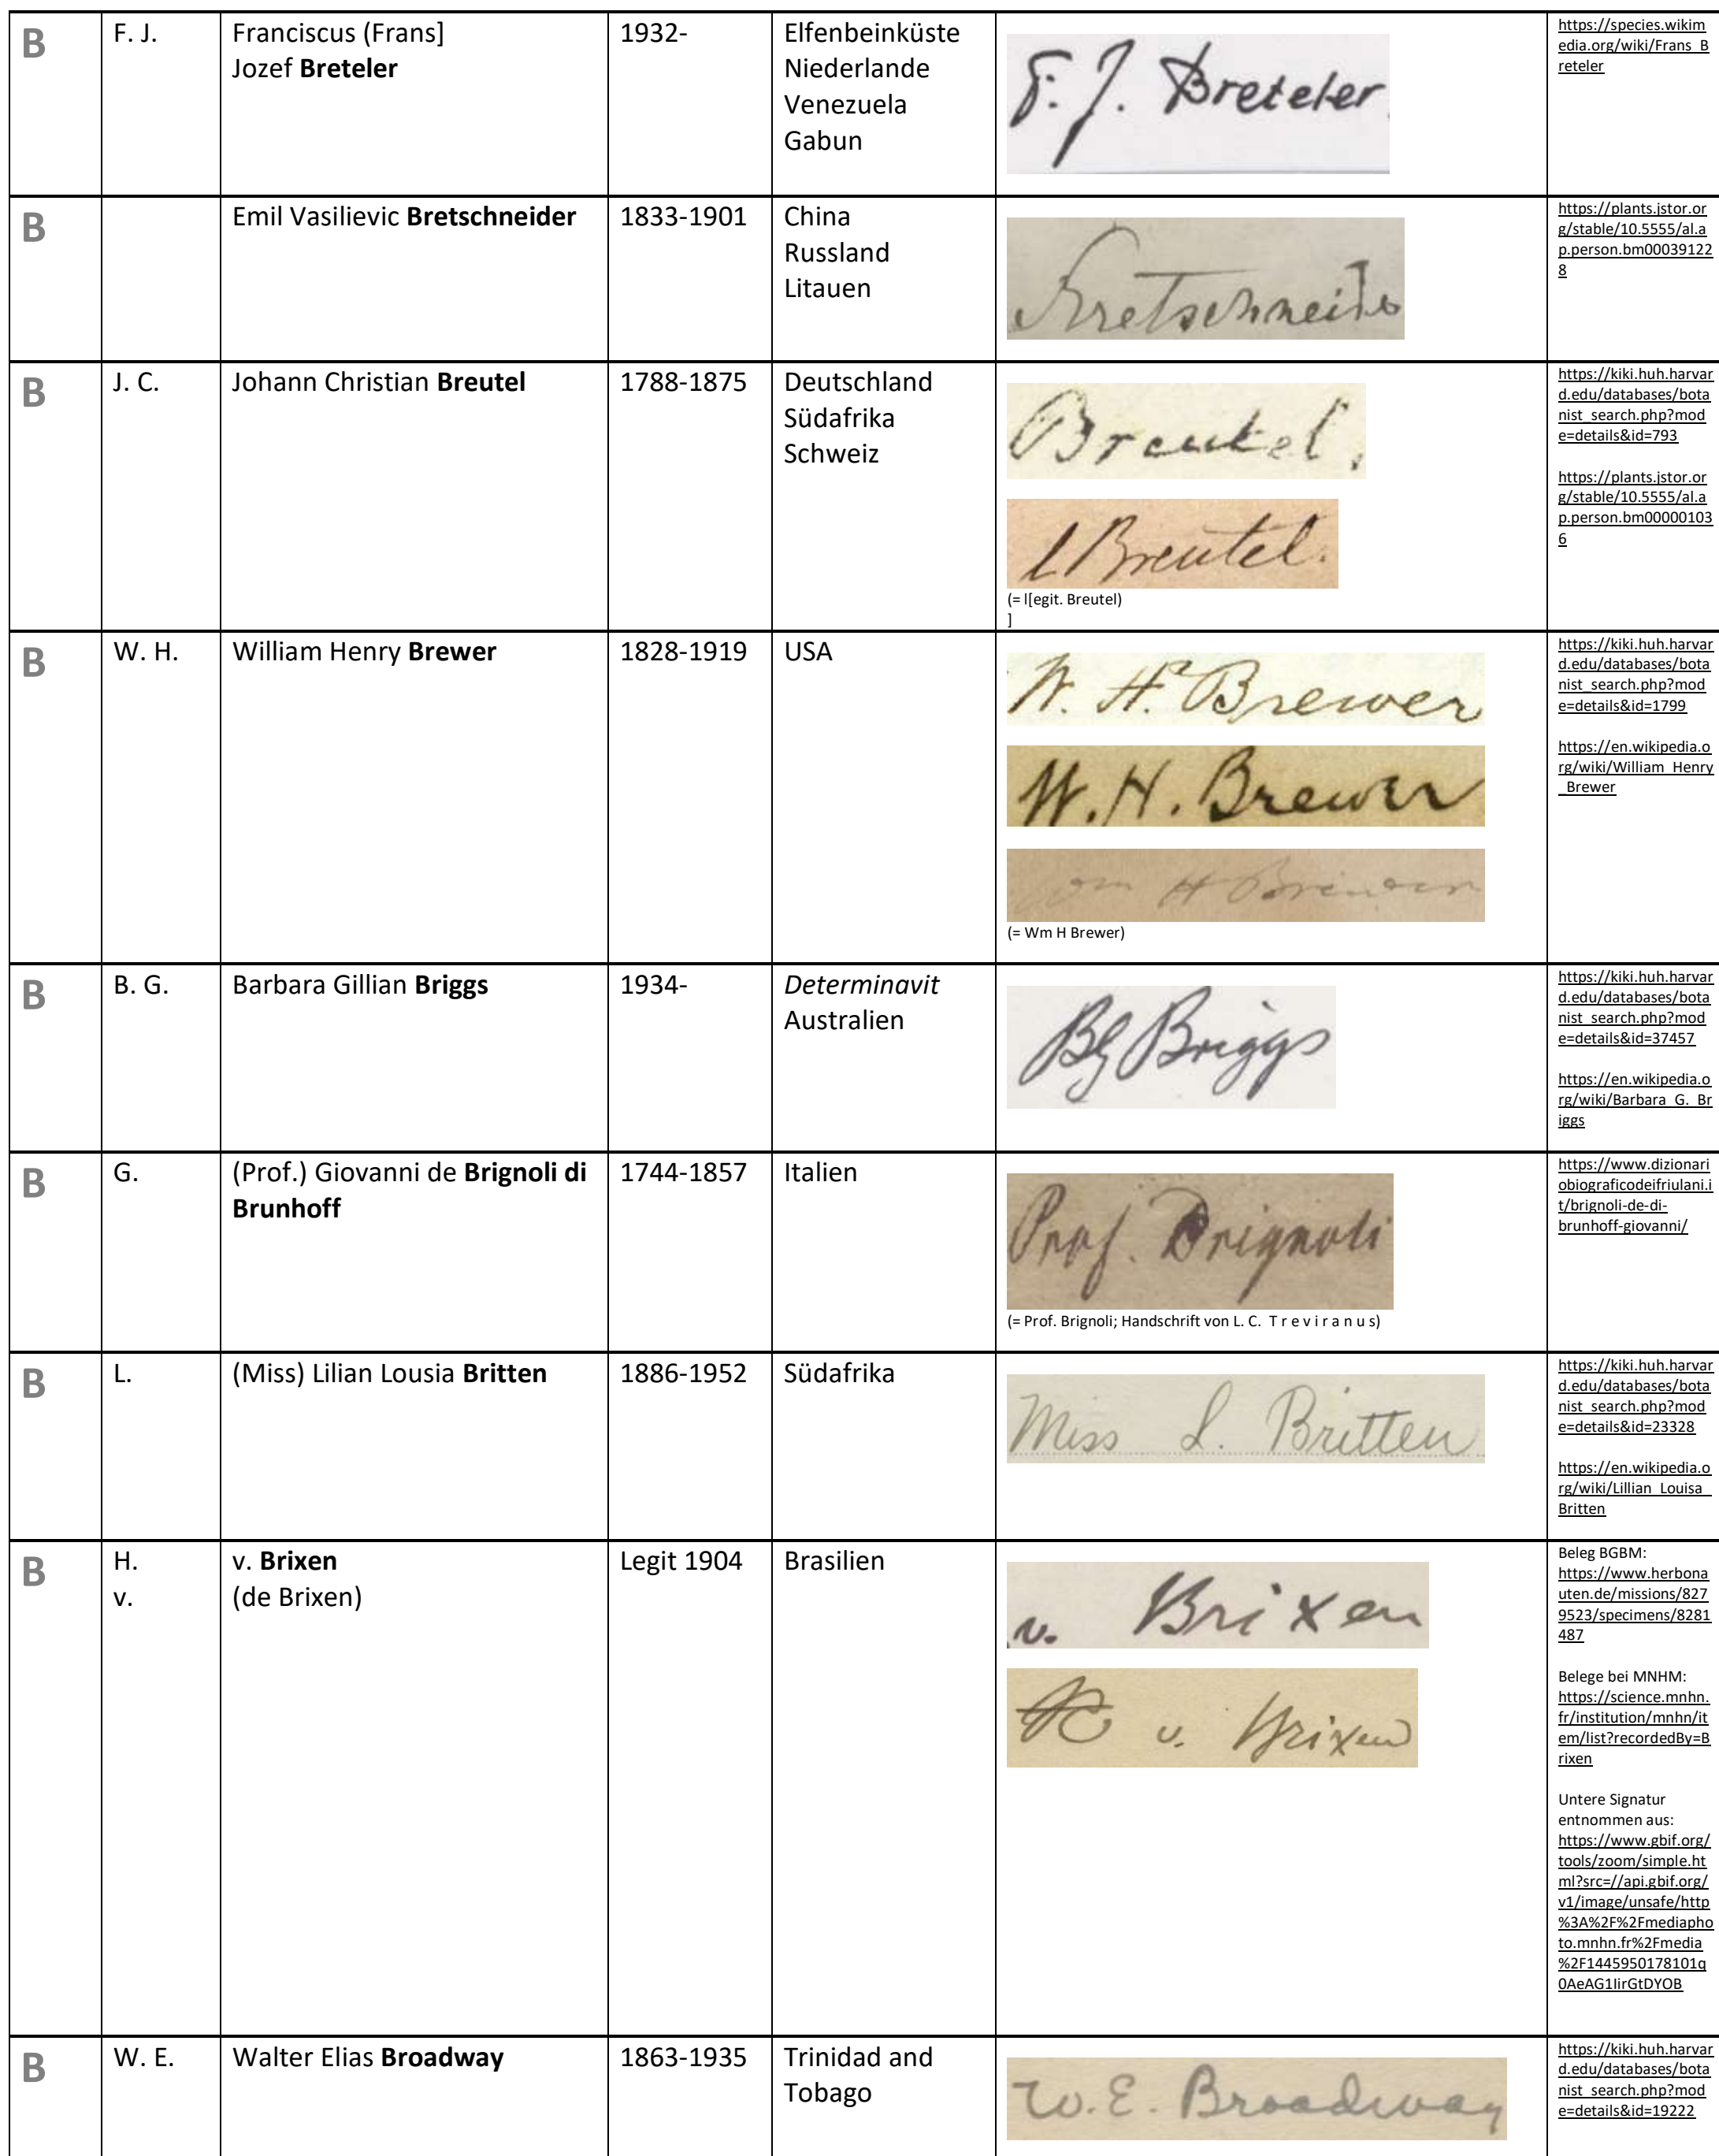 B
F. J.
Franciscus (Frans]
Jozef Breteler
1932-
Elfenbeinküste
Niederlande
Venezuela
Gabun
F. J. Breteler
https://species.wikim
edia.org/wiki/Frans_B
reteler
B
Emil Vasilievic Bretschneider
1833-1901
China
Russland
Litauen
Bretschneider
https://plants.jstor.or
g/stable/10.5555/al.a
p.person.bm00039122
8
B
J. C.
Johann Christian Breutel
1788-1875
Deutschland
Südafrika
Schweiz
Breutel.
l Breutel.
(= l[egit. Breutel)
]
https://kiki.huh.harvar
d.edu/databases/bota
nist_search.php?mod
e=details&id=793
https://plants.jstor.or
g/stable/10.5555/al.a
p.person.bm00000103
6
B
W. H.
William Henry Brewer
1828-1919
USA
W. H. Brewer
W. H. Brewer
Wm H Brewer
(= Wm H Brewer)
https://kiki.huh.harvar
d.edu/databases/bota
nist_search.php?mod
e=details&id=1799
https://en.wikipedia.o
rg/wiki/William_Henry
_Brewer
B
B. G.
Barbara Gillian Briggs
1934-
Determinavit
Australien
BG Briggs
https://kiki.huh.harvar
d.edu/databases/bota
nist_search.php?mod
e=details&id=37457
https://en.wikipedia.o
rg/wiki/Barbara_G._Br
iggs
B
G.
(Prof.) Giovanni de Brignoli di
Brunhoff
1744-1857
Italien
Prof. Brignoli
(= Prof. Brignoli; Handschrift von L. C. T r e v i r a n u s)
https://www.dizionari
obiograficodeifriulani.i
t/brignoli-de-di-
brunhoff-giovanni/
B
L.
(Miss) Lilian Lousia Britten
1886-1952
Südafrika
Miss L. Britten
https://kiki.huh.harvar
d.edu/databases/bota
nist_search.php?mod
e=details&id=23328
https://en.wikipedia.o
rg/wiki/Lillian_Louisa_
Britten
B
H.
v.
v. Brixen
(de Brixen)
Legit 1904
Brasilien
v. Brixen
H v. Brixen
Beleg BGBM:
https://www.herbona
uten.de/missions/827
9523/specimens/8281
487
Belege bei MNHM:
https://science.mnhn.
fr/institution/mnhn/it
em/list?recordedBy=B
rixen
Untere Signatur
entnommen aus:
https://www.gbif.org/
tools/zoom/simple.ht
ml?src=//api.gbif.org/
v1/image/unsafe/http
%3A%2F%2Fmediapho
to.mnhn.fr%2Fmedia
%2F1445950178101q
0AeAG1IirGtDYOB
B
W. E.
Walter Elias Broadway
1863-1935
Trinidad and
Tobago
W. E. Broadway
https://kiki.huh.harvar
d.edu/databases/bota
nist_search.php?mod
e=details&id=19222